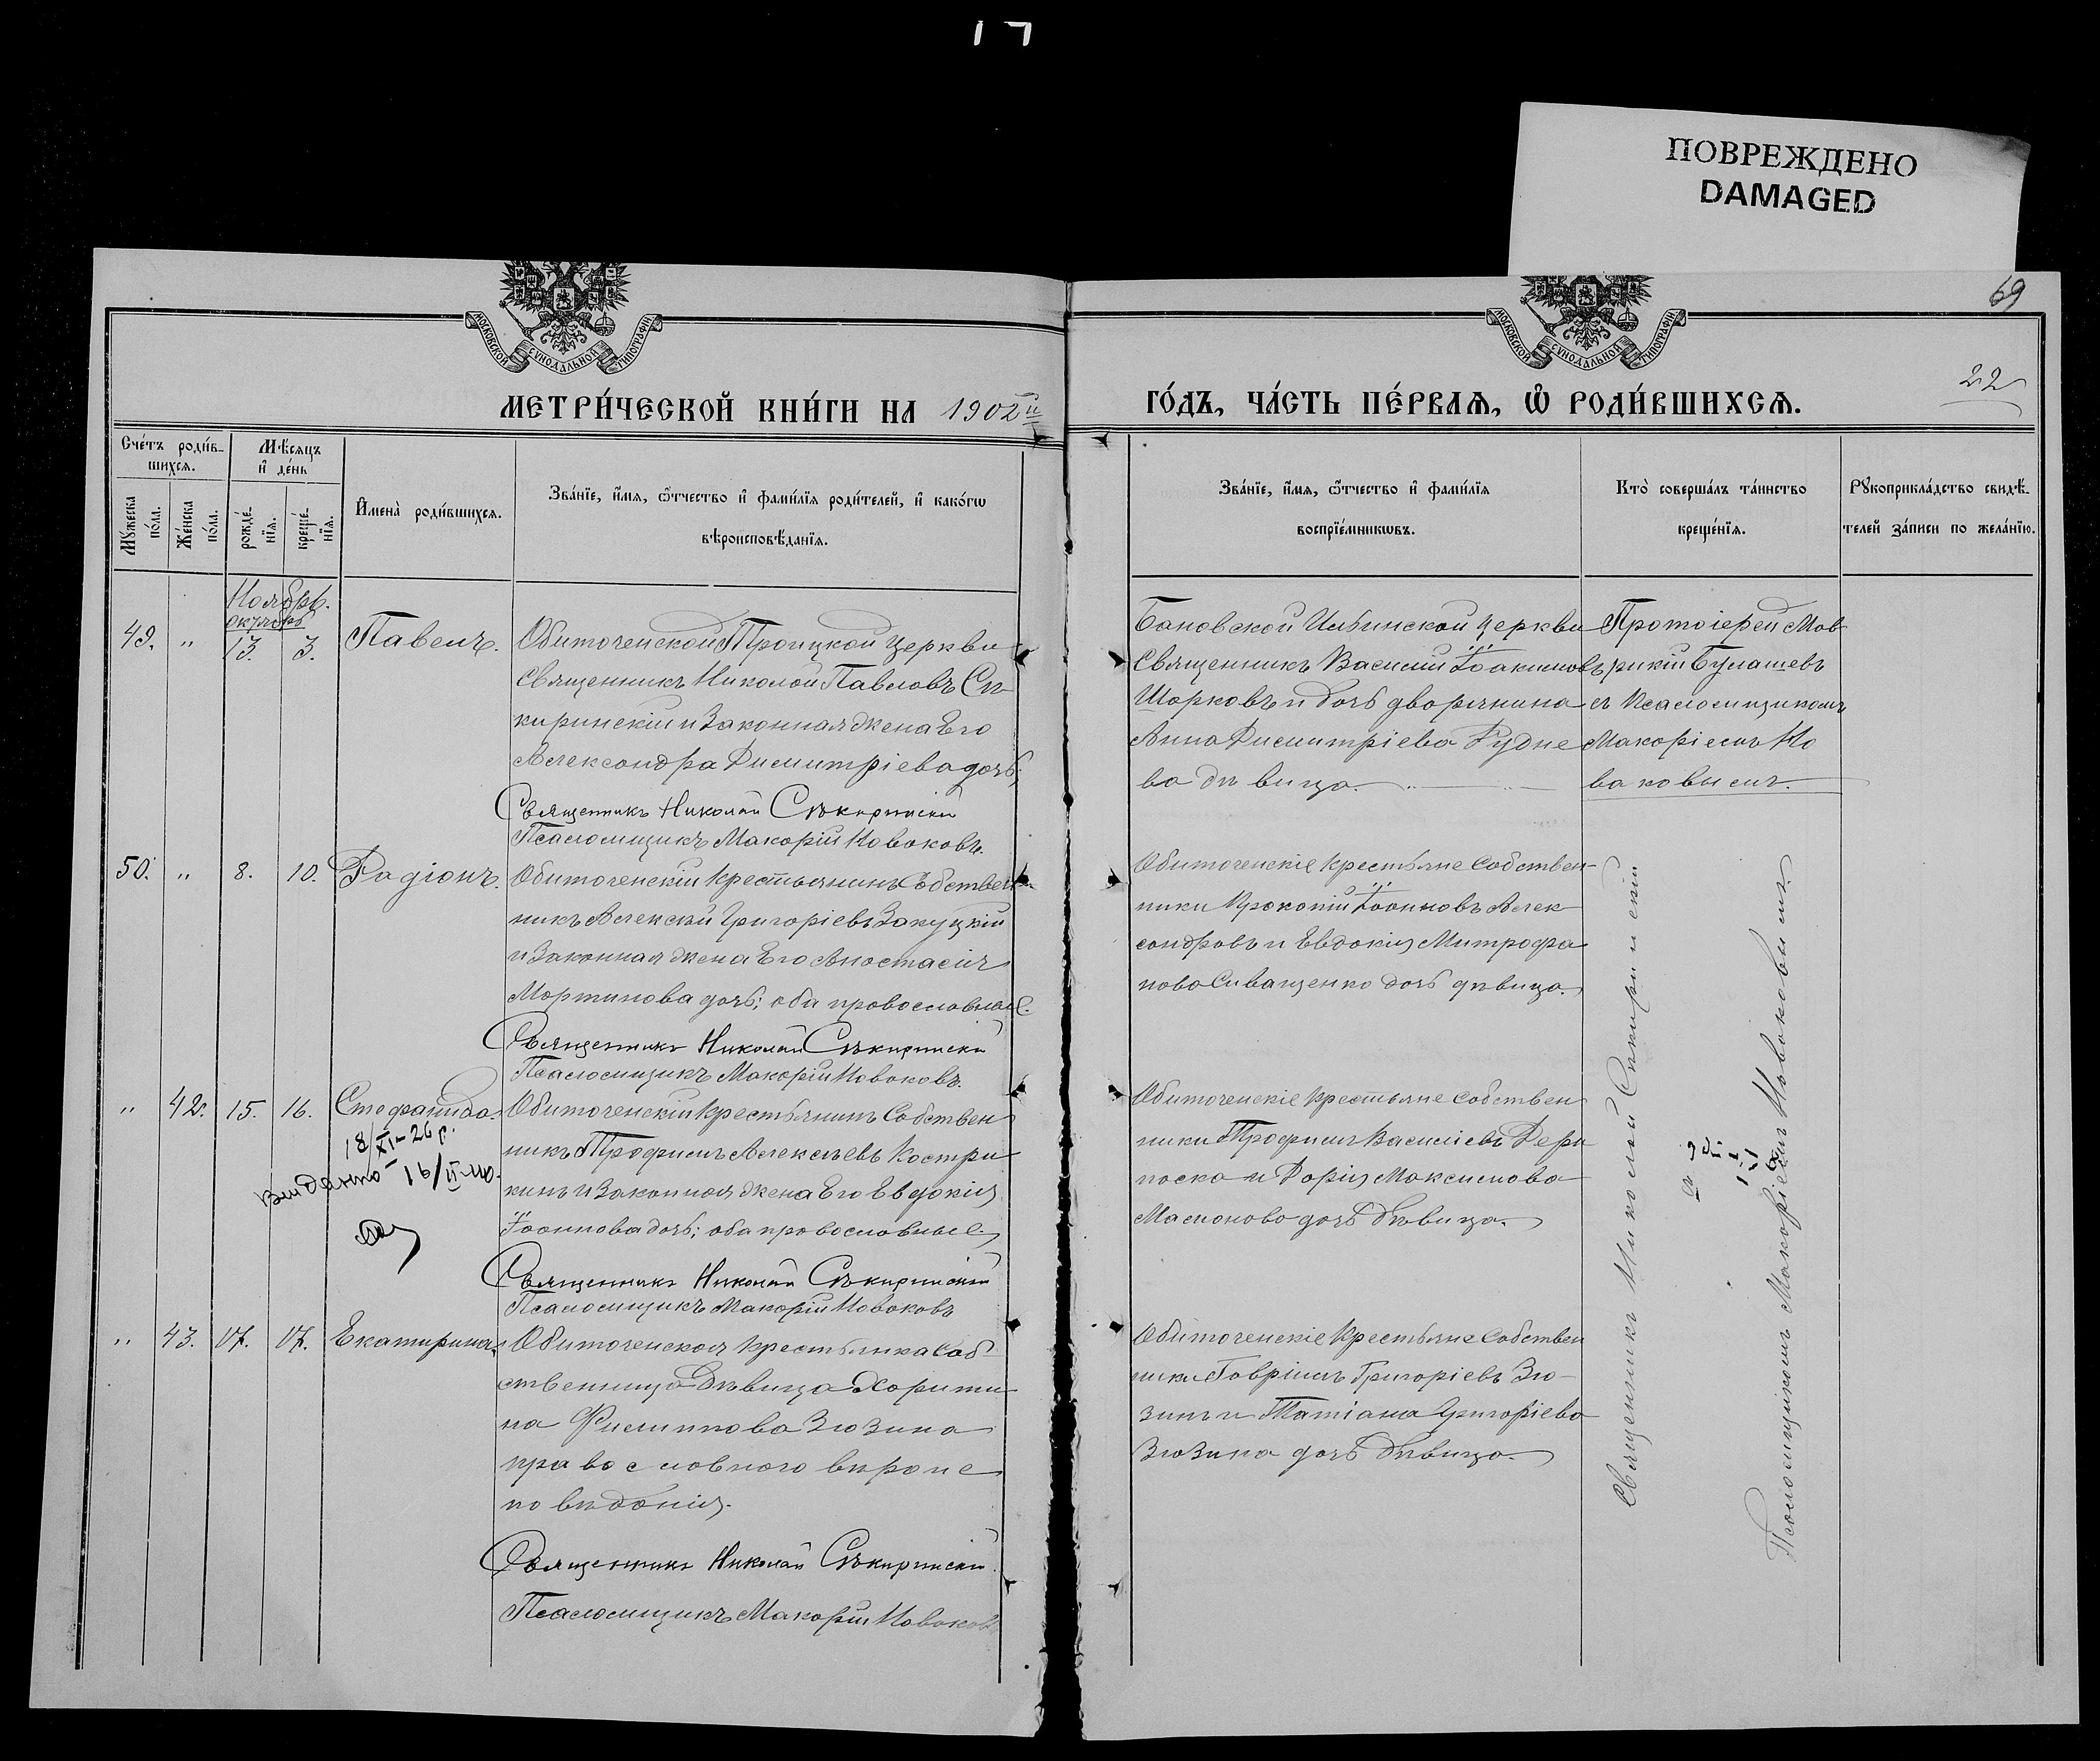 ПОВРЕЖДЕНО
DAMAGED
69
22
МОСКОВСКОЙ СѴНОДАЛЬНОЙ ТИПОГРАФІИ
МОСКОВСКОЙ СѴНОДАЛЬНОЙ ТИПОГРАФІИ
МЕТРИ́ЧЕСКОЙ КНИ́ГИ НА 1902й
ГО́ДЪ, ЧА́СТЬ ПЕ́РВАѦ, Ѡ РОДИ́ВШИХСѦ.
Сче́тъ роди́в-
шихсѧ.
Мѣ́сѧцъ
и҆ де́нь
Мꙋ́жеска
по́ла.
Же́нска
по́ла.
рожде́-
нїѧ.
креще́-
нїѧ.
И҆мена̀ роди́вшихсѧ.
Зва́нїе, и҆́мѧ, ѻ҆́тчество и҆ фами́лїѧ роди́телей, и҆ како́гѡ
вѣроисповѣ́данїѧ.
Зва́нїе, и҆́мѧ, ѻ҆́тчество и҆ фами́лїѧ
воспрїе́мникѡвъ.
Кто̀ соверша́лъ та́инство
креще́нїѧ.
Рꙋкоприкла́дство свидѣ́-
телей за́писи по жела́нїю.
Ноябрь.
октябрь
49. " 13. 3. Павелъ. Обиточенской Троицкой церкви
Священникъ Николай Павловъ Сѣ-
киринскій и Законная жена Его
Александра Димитріева дочь;
Священникъ Николай Сѣкиринскій
Псаломщикъ Макарій Новаковъ.
Бановской Ильинской церкви
Священникъ Василій Іоакимовъ
Шарковъ и дочь дворянина
Анна Димитріева Рудне
ва дѣвица.
Протоіерей Мав-
рикій Булашевъ
съ Псаломщикомъ
Макаріемъ Но
ваковымъ.
50. " 8. 10. Радіонъ. Обиточенскій крестьянинъ Собствен-
никъ Алексѣй Григоріевъ Закуцкій
и Законная жена Его Анастасія
Мартинова дочь; оба православные.
Священникъ Николай Сѣкиринскій
Псаломщикъ Макарій Новаковъ.
Обиточенскіе крестьяне собствен-
ники Прокопій Іоанновъ Алек
сандровъ и Евдокія Митрофа
нова Сиващенко дочь дѣвица.
" 42. 15. 16. Стефанида. Обиточенскій крестьянинъ Собствен
18/XI-26 р.
Видано 16/II-40.
никъ Трофимъ Алексѣевъ Костри
кинъ и Законная жена Его Евдокія
Іоаннова дочь; оба православные
Священникъ Николай Сѣкиринскій
Псаломщикъ Макарій Новаковъ
Обиточенскіе крестьяне собствен
ники Трофимъ Василіевъ Дери
носка и Дарія Максимова
Масионова дочь дѣвица.
" 43. 17. 17. Екатирина. Обиточенская крестьянка Соб-
ственница Дѣвица Харити
на Филиппова Зюзина
православного вѣроис
повѣданія.
Священникъ Николай Сѣкиринскій.
Псаломщикъ Макарій Новаковъ
Обиточенскіе крестьяне собствен
ники Гавріилъ Григоріевъ Зю-
зинъ и Татіана Григоріева
Зюзина дочь дѣвица.
Священникъ Николай Сѣкиринскій
съ
Псаломщикомъ Макаріемъ Новаковымъ.